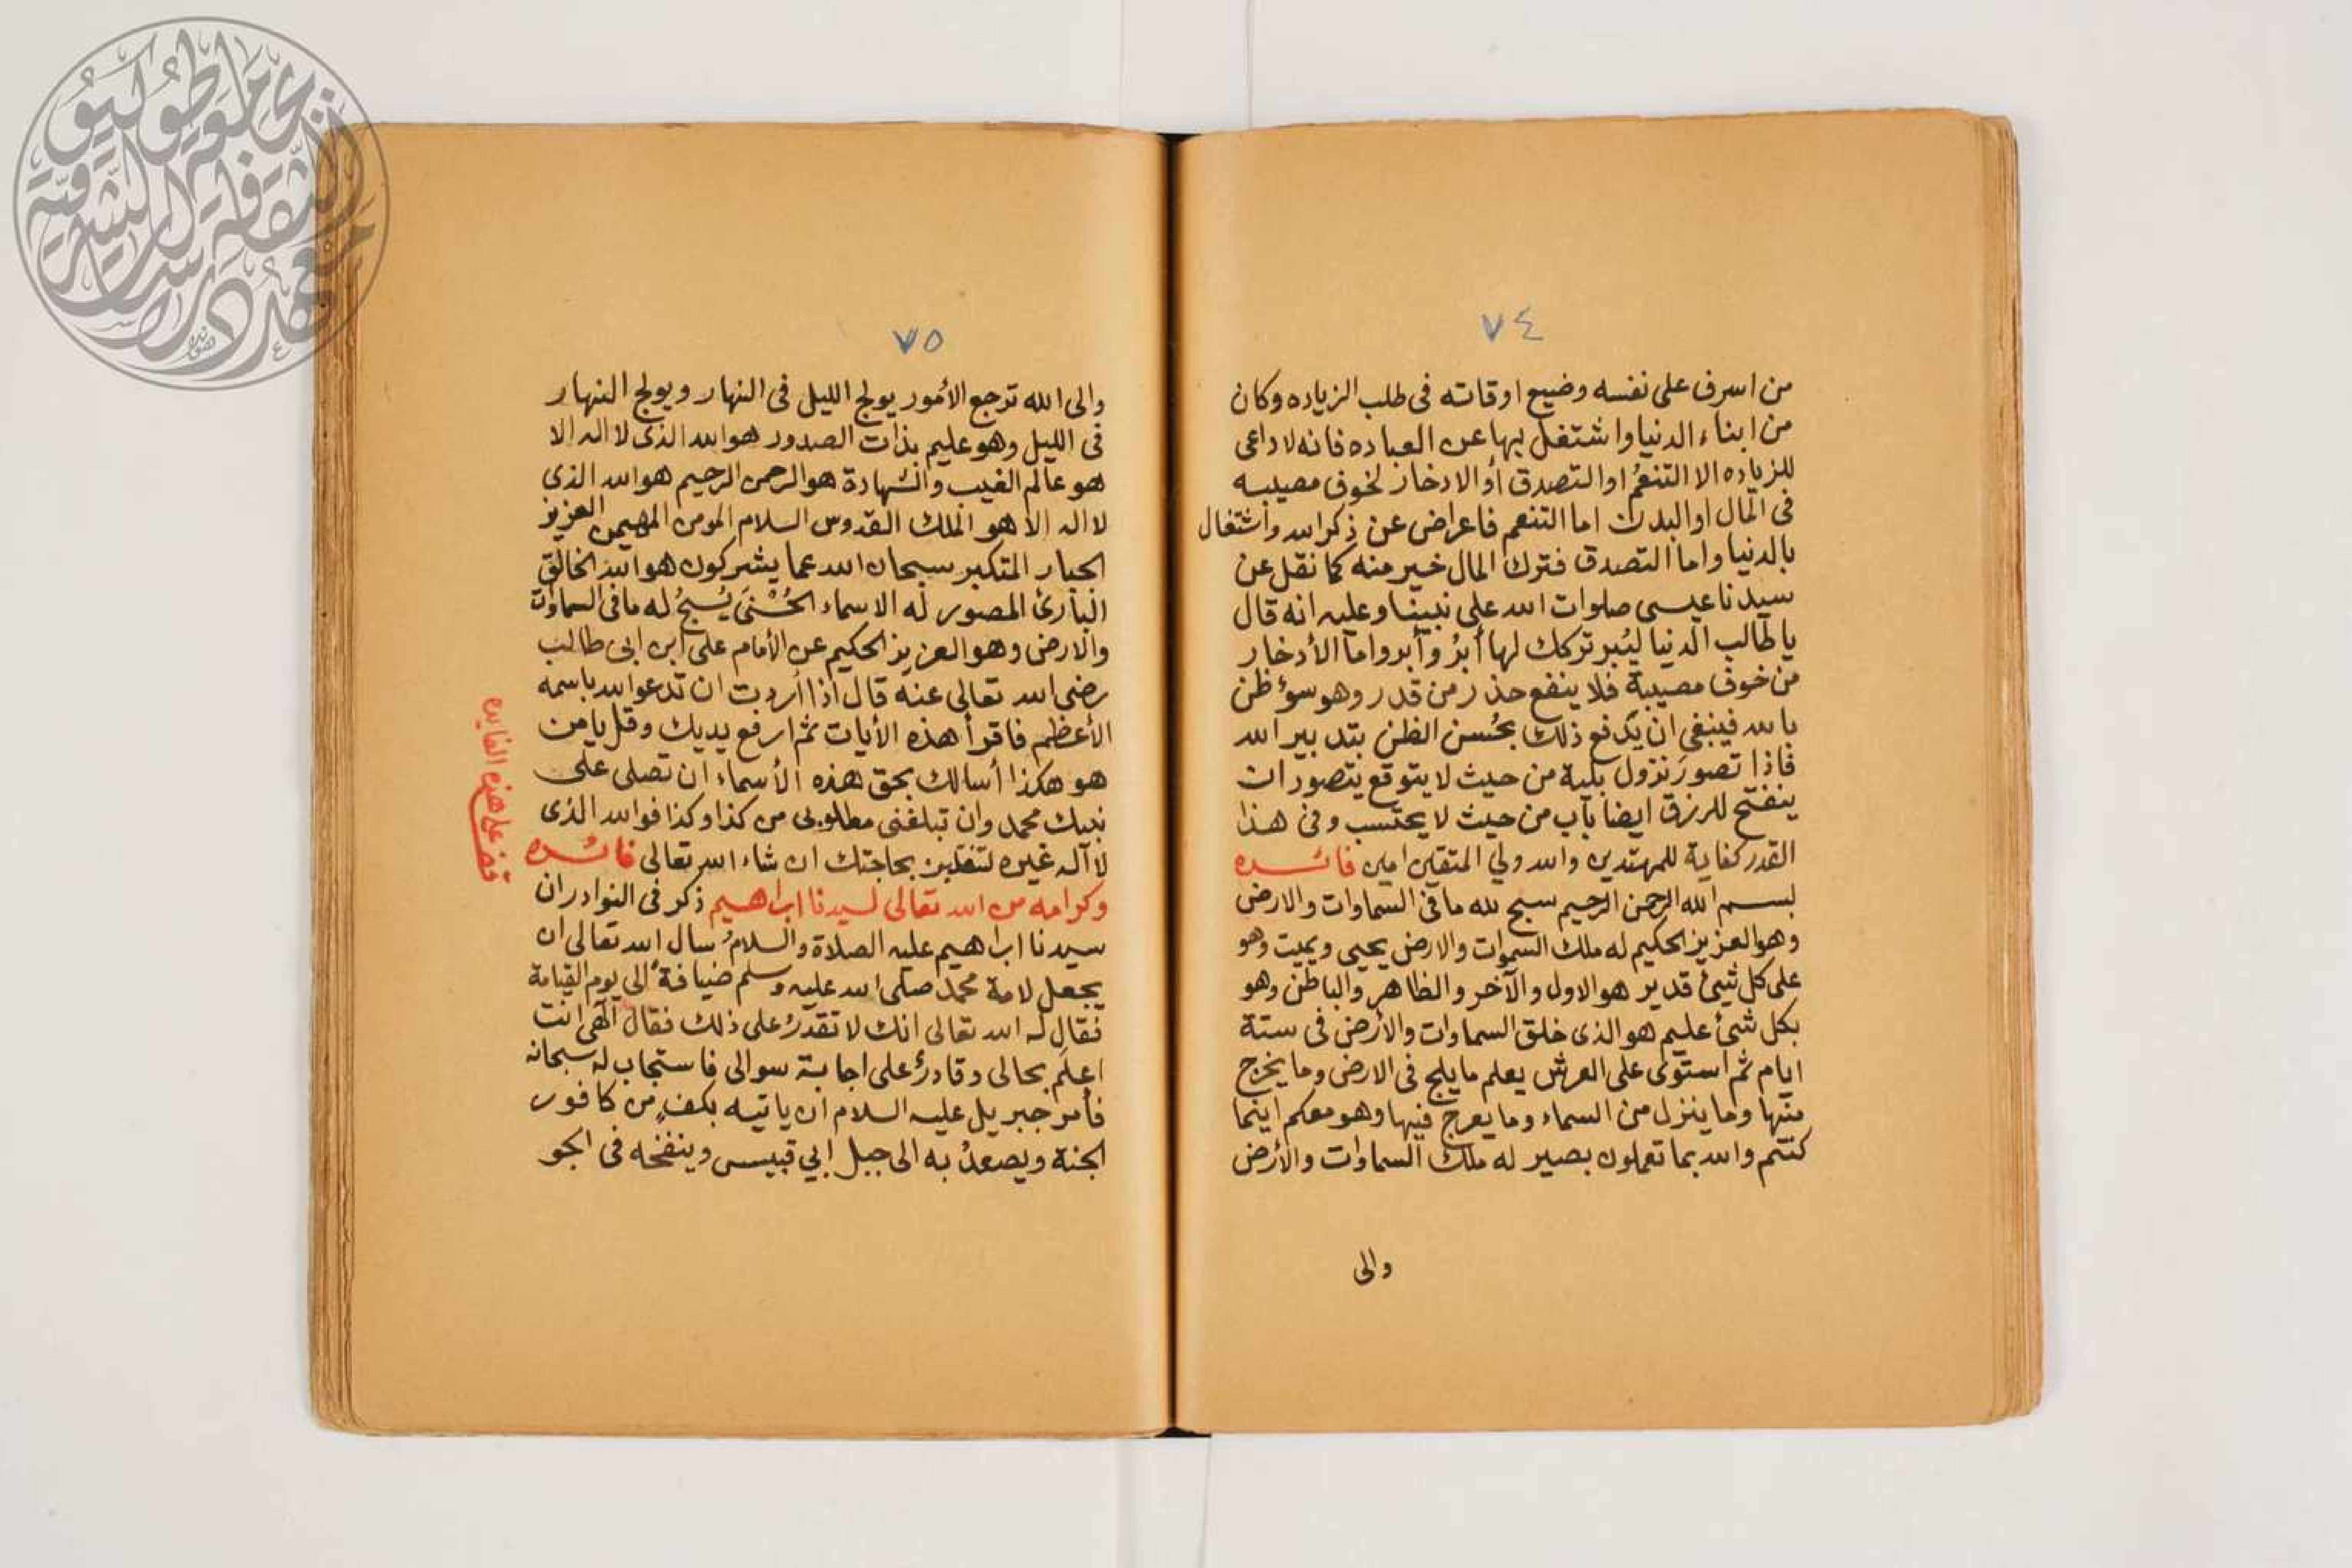 ٧٤
من اسرف على نفسه وضيع اوقاته فى طلب الزياده وكان
من ابناء الدنيا واشتغل بها عن العباده فانه لا داعى
للزياده الا التنعُّم او التصدق أو الادخار لخوف مصيبه
فى المال او البدن اما التنعم فاعراض عن ذكر الله واشتغال
بالدنيا واما التصدق فترك المال خير منه كما نقل عن
سيدنا عيسى صلوات الله على نبينا وعليه انه قال
يا طالب الدنيا ليُبر تركك لها أبرُ وأبر واما الأدخار
من خوف مصيبة فلا ينفع حذر من قدر وهو سؤ ظن
بالله فينبغى ان يَدفع ذلك بحُسن الظن بتدبير الله
فاذا تصورَ نزول بلية من حيث لا يتوقع يتصور ان
ينفتح للرزق ايضا باب من حيث لا يحتسب وفى هذا
القدر كفاية للمهتدين والله ولي المتقين امين فائده
بسم الله الرحمن الرحيم سبح لله ما فى السماوات والارض
وهو العزيز الحكيم له ملك السموات والارض يحيى ويميت وهو
على كل شيئ قدير هو الاول والآخر والظاهر والباطن وهو
بكل شئ عليم هو الذى خلق السماوات والأرض فى ستة
ايام ثم استوى على العرش يعلم ما يلج فى الارض وما يخرج
منها وما ينزل من السماء وما يعرج فيها وهو معكم اينما
كنتم والله بما تعملون بصير له ملك السماوات والأرض
والى
٧٥
والى الله ترجع الأمور يولج الليل فى النهار ويولج النهار
فى الليل وهو عليم بذات الصدور هو الله الذى لا اله الا
هو عالم الغيب والشهادة هو الرحمن الرحيم هو الله الذى
لا اله الا هو الملك القدوس السلام المومن المهيمن العزيز
الجبار المتكبر سبحان الله عما يشركون هو الله الخالق
البارئ المصور له الاسماء الحُسْنَى يُسبحُ له ما فى السماوات
والارض وهو العزيز الحكيم عن الأمام على ابن ابى طالب
رضى الله تعالى عنه قال اذا أردت ان تدعو الله باسمه
الأعظم فاقرأ هذه الأيات ثم ارفع يديك وقل يا من
هو هكذا أسالك بحق هذه الأسماء ان تصلى على
نبيك محمد وان تبلغنى مطلوبى من كذا وكذا فوالله الذى
لا آله غيره لتنقلبن بحاجتك ان شاء الله تعالى فائده
وكرامه من الله تعالى لسيدنا ابراهيم ذكر فى النوادر ان
سيدنا ابراهيم عليه الصلاة والسلامُ سال الله تعالى ان
يجعل لامة محمد صلى الله عليه وسلم ضيافةً الى يوم القيامة
فقال له الله تعالى انك لا تقدرُ على ذلك فقال آلهى انت
اعلَم بحالى وقادرٌ على اجابة سوالى فاستجاب له سبحانه
فأمر جبريل عليه السلام ان ياتيه بكفٍ من كافور
الجنة ويصعدُ به الى جبل ابي قبيس وينفخه فى الجو
قف على هذه الفايده